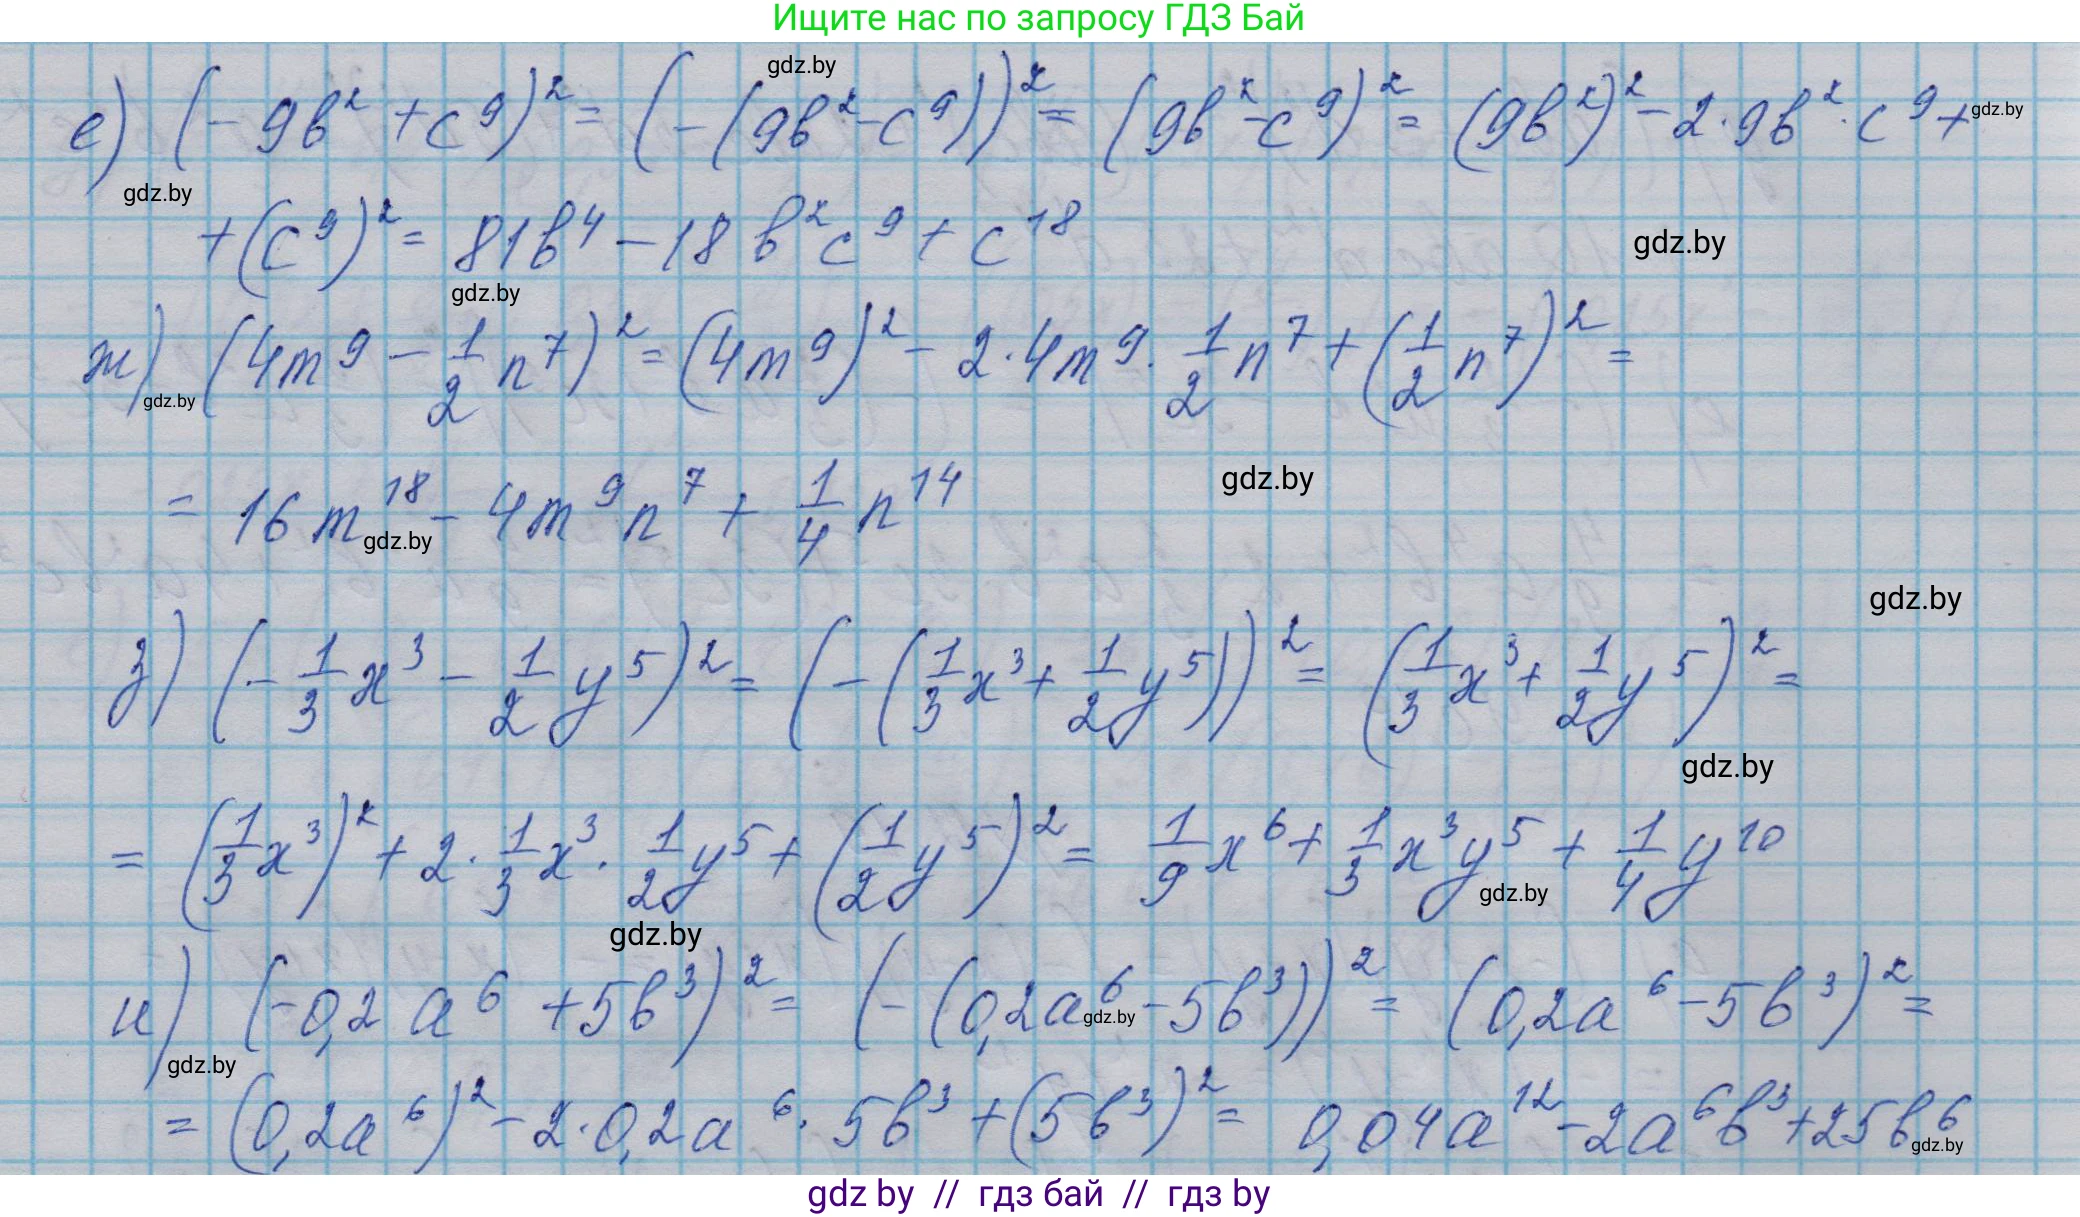 Ищите нас по запросу ГДЗ Бай
gdz.by
е) (-9b² + c⁹)² = (-(9b² - c⁹))² = (9b² - c⁹)² = (9b²)² - 2·9b²·c⁹ +
gdz.by
gdz.by
+ (c⁹)² = 81b⁴ - 18b²c⁹ + c¹⁸
gdz.by
gdz.by
ж) (4m⁹ - 1/2 n⁷)² = (4m⁹)² - 2·4m⁹·1/2 n⁷ + (1/2 n⁷)² =
gdz.by
= 16m¹⁸ - 4m⁹n⁷ + 1/4 n¹⁴
gdz.by
gdz.by
gdz.by
з) (-1/3 x³ - 1/2 y⁵)² = (-(1/3 x³ + 1/2 y⁵))² = (1/3 x³ + 1/2 y⁵)² =
gdz.by
= (1/3 x³)² + 2·1/3 x³·1/2 y⁵ + (1/2 y⁵)² = 1/9 x⁶ + 1/3 x³y⁵ + 1/4 y¹⁰
gdz.by
gdz.by
и) (-0,2a⁶ + 5b³)² = (-(0,2a⁶ - 5b³))² = (0,2a⁶ - 5b³)² =
gdz.by
gdz.by
= (0,2a⁶)² - 2·0,2a⁶·5b³ + (5b³)² = 0,04a¹² - 2a⁶b³ + 25b⁶
gdz.by
gdz by // гдз бай // гдз by